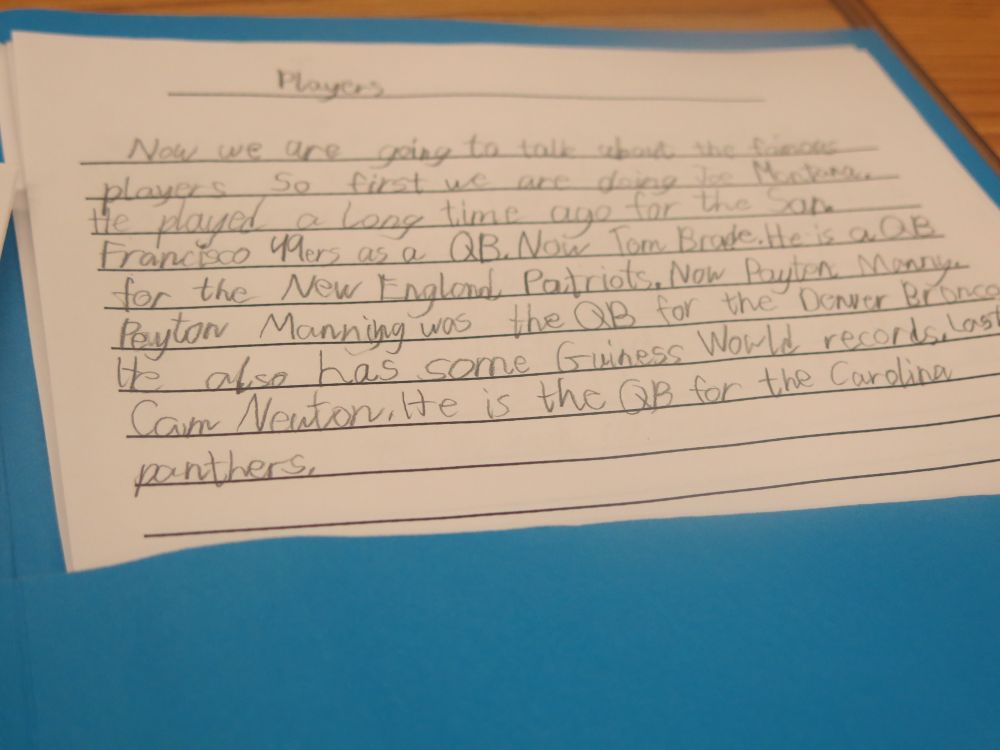 Players
Now we are going to talk about the famous
players So first we are doing Joe Montana.
He played a long time ago for the San
Francisco 49ers as a QB. Now Tom Brade. He is a QB
for the New England Patriots. Now Payton Manny.
Peyton Manning was the QB for the Denver Bronco
He also has some Guiness Would records. Last
Cam Newton. He is the QB for the Carolina
panthers.